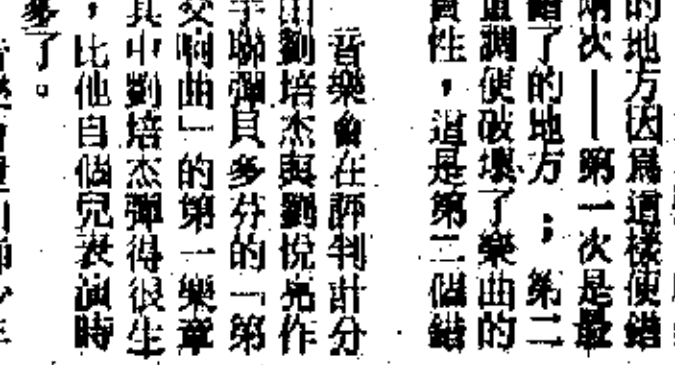 的地方因爲這樣便錯
兩次——第一次是最
錯了的地方；第二
調便破壞了樂曲的
性，這是第二個錯
音樂會在評判計分
由劉培杰與劉悅堯作
手聯彈貝多芬的「第
交响曲」的第一樂章
其中劉培杰彈得很生
，比他自個兒表演時
多了。